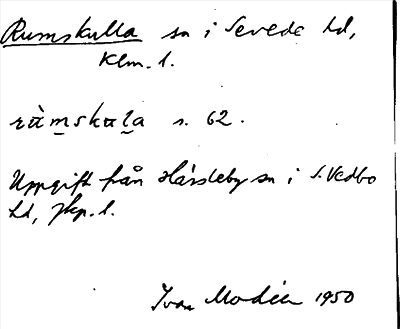 Rumskulla sn i Sevede hd,
Klm. l.
ràmskala s. 62.
Uppgift från Hässleby sn i S. Vedbo
hd, Jkp. l.
Ivar Modéer 1950